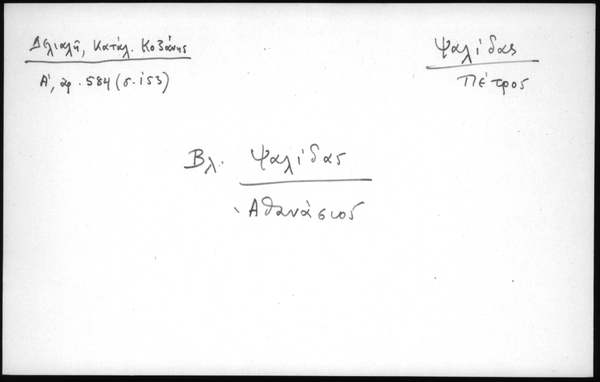 Δελιαλῆ, Κατάλ. Κοζάνης
Α', ἀρ. 584 (σ. 153)
Ψαλίδας
Πέτρος
Βλ. Ψαλίδας
Ἀθανάσιος